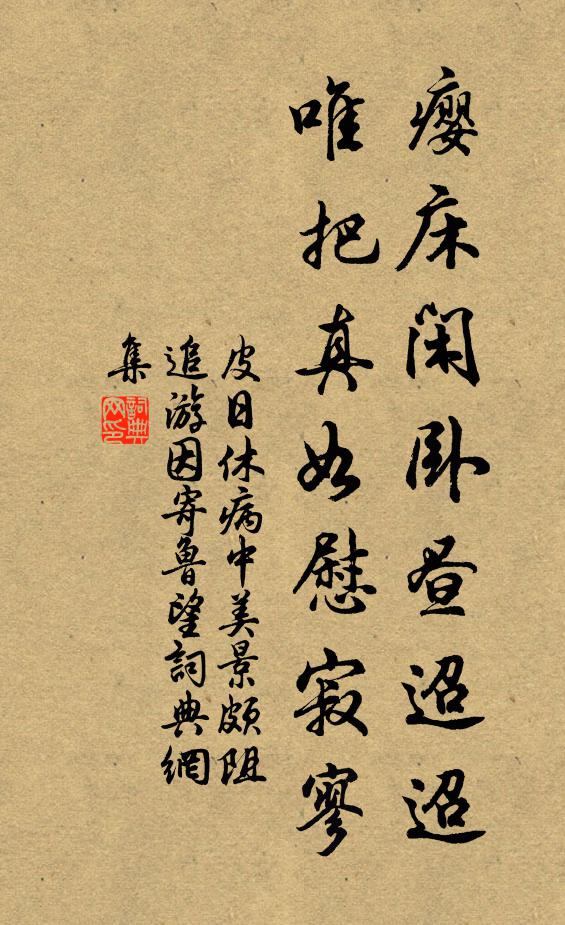 瘿床闲卧昼迢迢
唯把真如慰寂寥
皮日休病中美景颇阻
追游因寄鲁望詞典網
集
詞典
网印